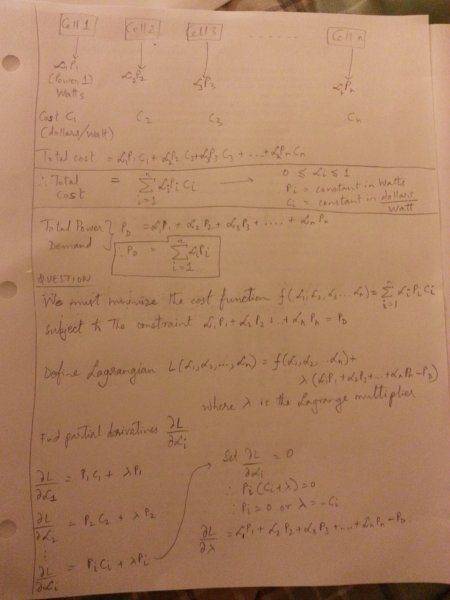 Cell 1 Cell 2 Cell 3 ........ Cell n
α₁P₁ α₂P₂ α₃P₃ αₙPₙ
(Power 1)
Watts
Cost C₁ C₂ C₃ Cₙ
(dollars/watt)
Total cost = α₁P₁C₁ + α₂P₂C₂ + α₃P₃C₃ + .... + αₙPₙCₙ
∴ Total Cost = ∑ᵢ₌₁ⁿ αᵢPᵢCᵢ → 0 ≤ αᵢ ≤ 1
Pᵢ = constant in Watts
Cᵢ = constant in dollars/Watt
Total Power Demand } P_D = α₁P₁ + α₂P₂ + α₃P₃ + ..... + αₙPₙ
∴ P_D = ∑ᵢ₌₁ⁿ αᵢPᵢ
QUESTION
We must minimize the cost function f(α₁,α₂,α₃...αₙ) = ∑ᵢ₌₁ⁿ αᵢPᵢCᵢ
subject to the constraint α₁P₁ + α₂P₂ + .. + αₙPₙ = P_D
Define Lagrangian L(α₁,α₂,...,αₙ) = f(α₁,α₂...αₙ) +
λ(α₁P₁ + α₂P₂ + ... + αₙPₙ - P_D)
where λ is the Lagrange multiplier
Find partial derivatives ∂L/∂αᵢ
∂L/∂α₁ = P₁C₁ + λP₁
∂L/∂α₂ = P₂C₂ + λP₂
⋮
∂L/∂αᵢ = PᵢCᵢ + λPᵢ
Set ∂L/∂αᵢ = 0
∴ Pᵢ(Cᵢ + λ) = 0
∴ Pᵢ = 0 or λ = -Cᵢ
∂L/∂λ = α₁P₁ + α₂P₂ + α₃P₃ + ... + αₙPₙ - P_D